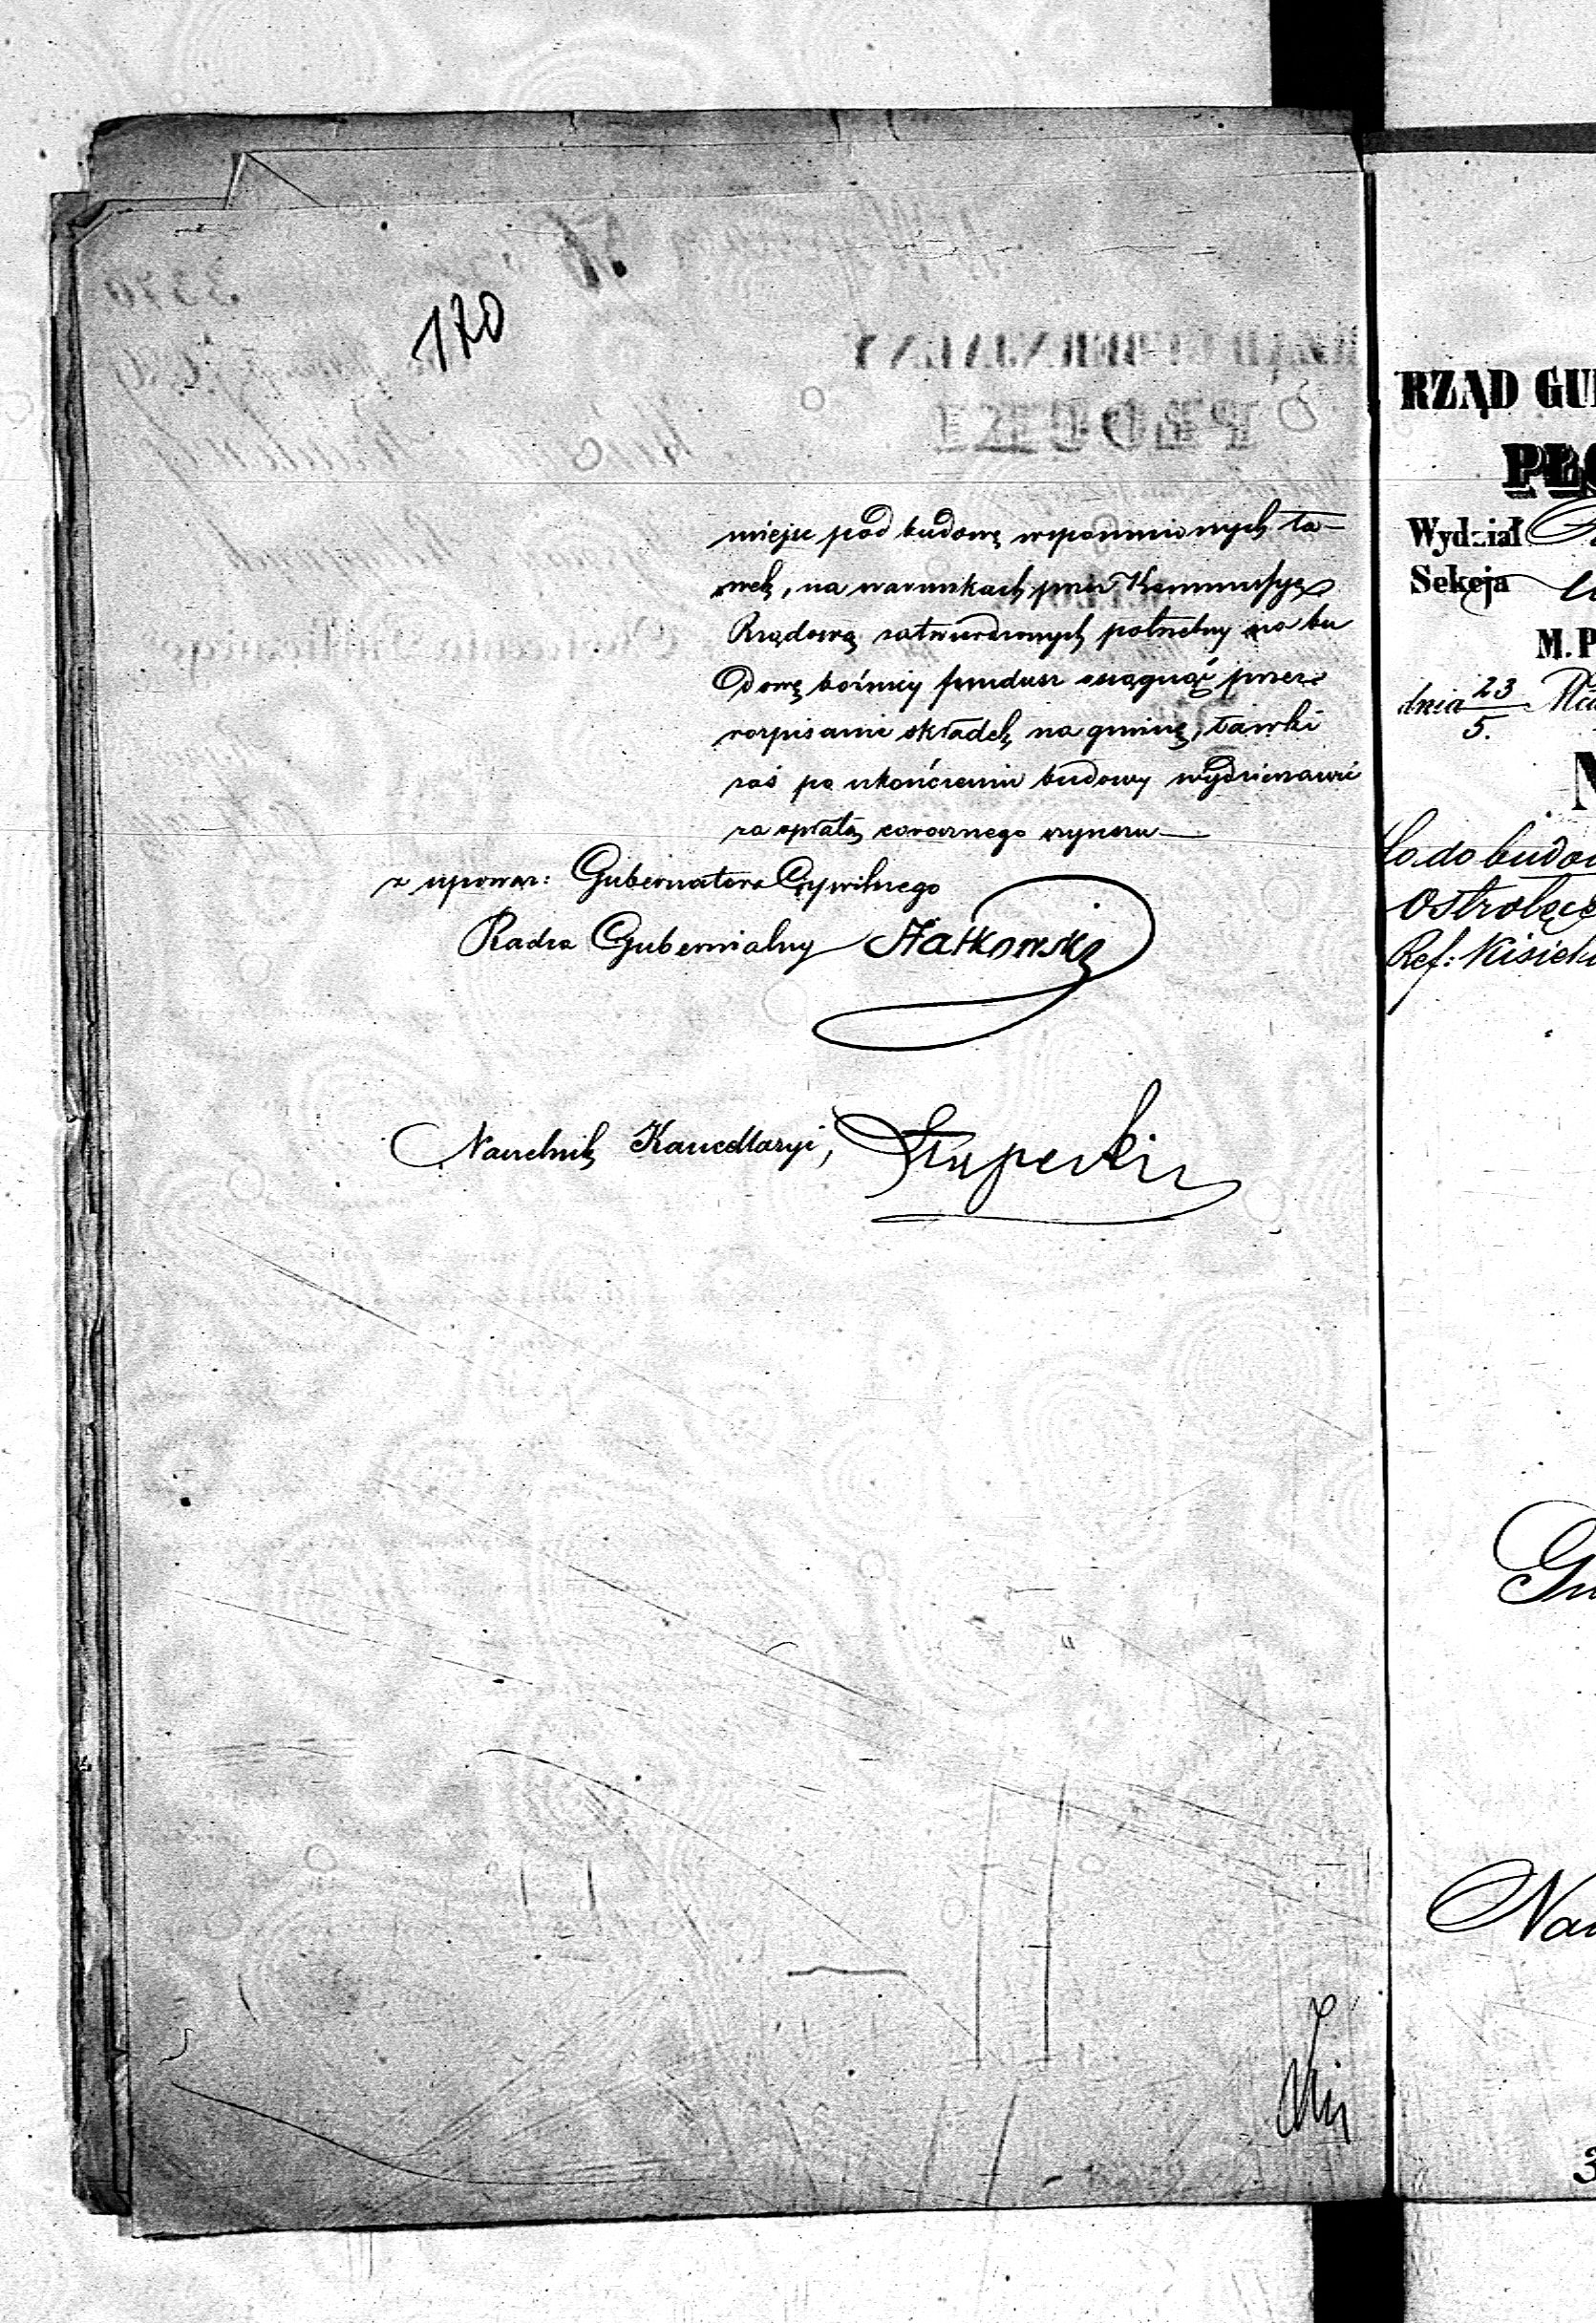 170
miejsc pod budowę wspomnionych ła-
wek, na warunkach przez Kommissyę
Rządową zatwierdzonych potrzebny na bu
dowę bożnicy fundusz osiągnąć przez
rozpisanie składek na gminę, ławki
zaś po ukończeniu budowy wydzierżawić
za opłatą corocznego czynszu—
z upoważ: Gubernatora Cywilnego
Radca Gubernialny
Naczelnik Kancellaryi,
RZĄD GU
PŁO
Wydział
Sekcja
M. P
dnia 23/5.
Co do budow
Ostrołęce
Ref: Kisiel
Gu
Na
3